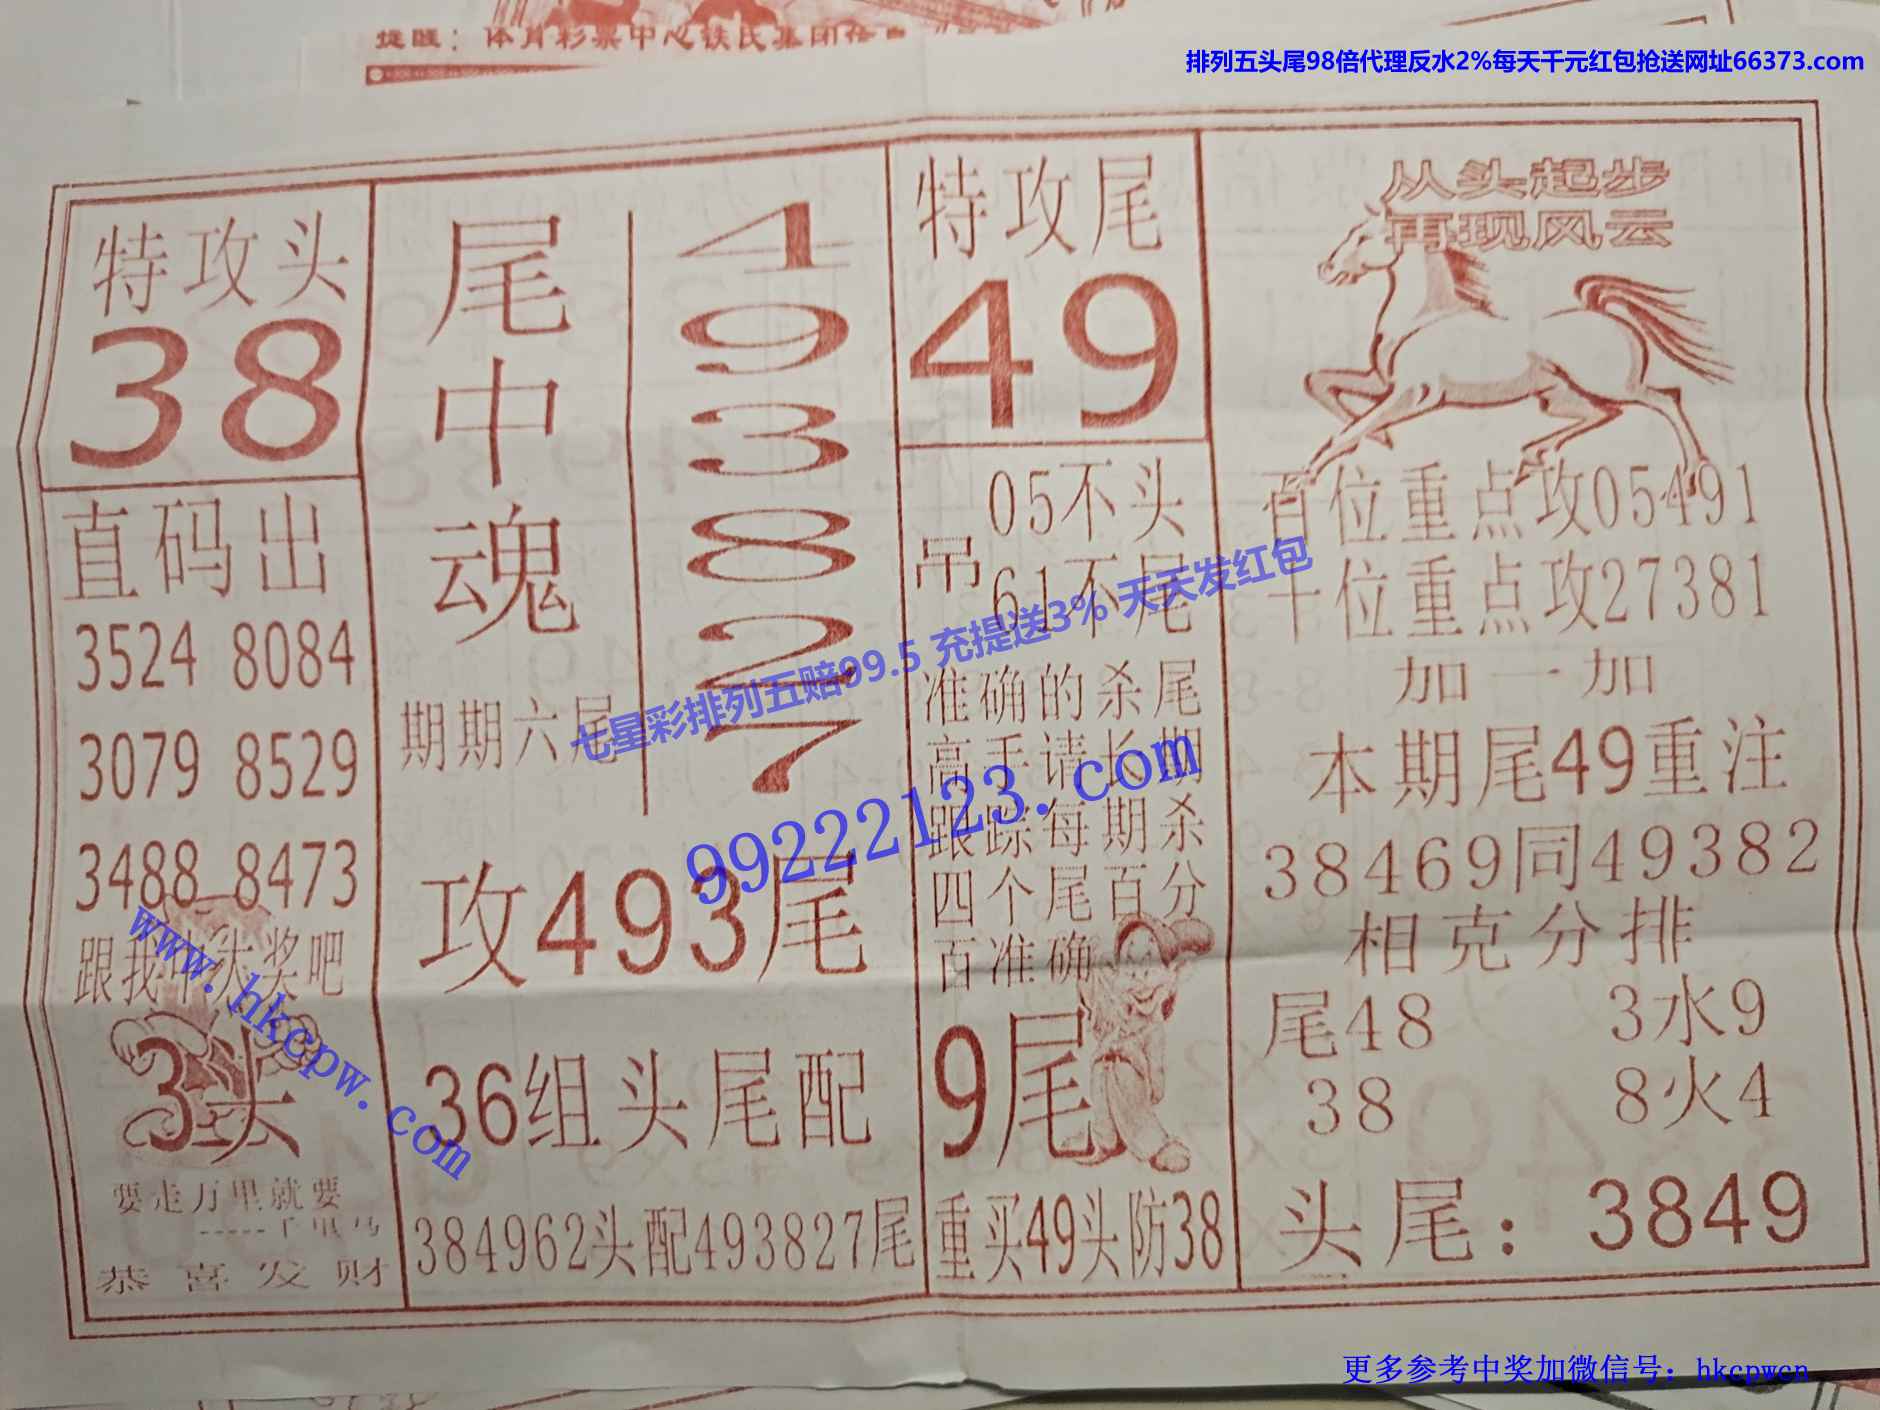 提醒：体育彩票中心铁氏集团
排列五头尾98倍代理反水2%每天千元红包抢送网址66373.com
特攻头
38
直码出
3524 8084
3079 8529
3488 8473
跟我中大奖吧
3头
要走万里就要
-----千里马
恭喜发财
尾中魂
期期六尾
4
9
3
8
2
7
攻493尾
36组头尾配
384962头配493827尾
特攻尾
49
05不头
吊
61不尾
准确的杀尾
高手请长期
跟踪每期杀
四个尾百分
百准确
9尾
重买49头防38
从头起步
再现风云
百位重点攻05491
十位重点攻27381
加一加
本期尾49重注
38469同49382
相克分排
尾48 3水9
38 8火4
头尾：3849
七星彩排列五赔99.5 充提送3% 天天发红包
99222123.com
www.hkcpw.com
更多参考中奖加微信号：hkcpwcn